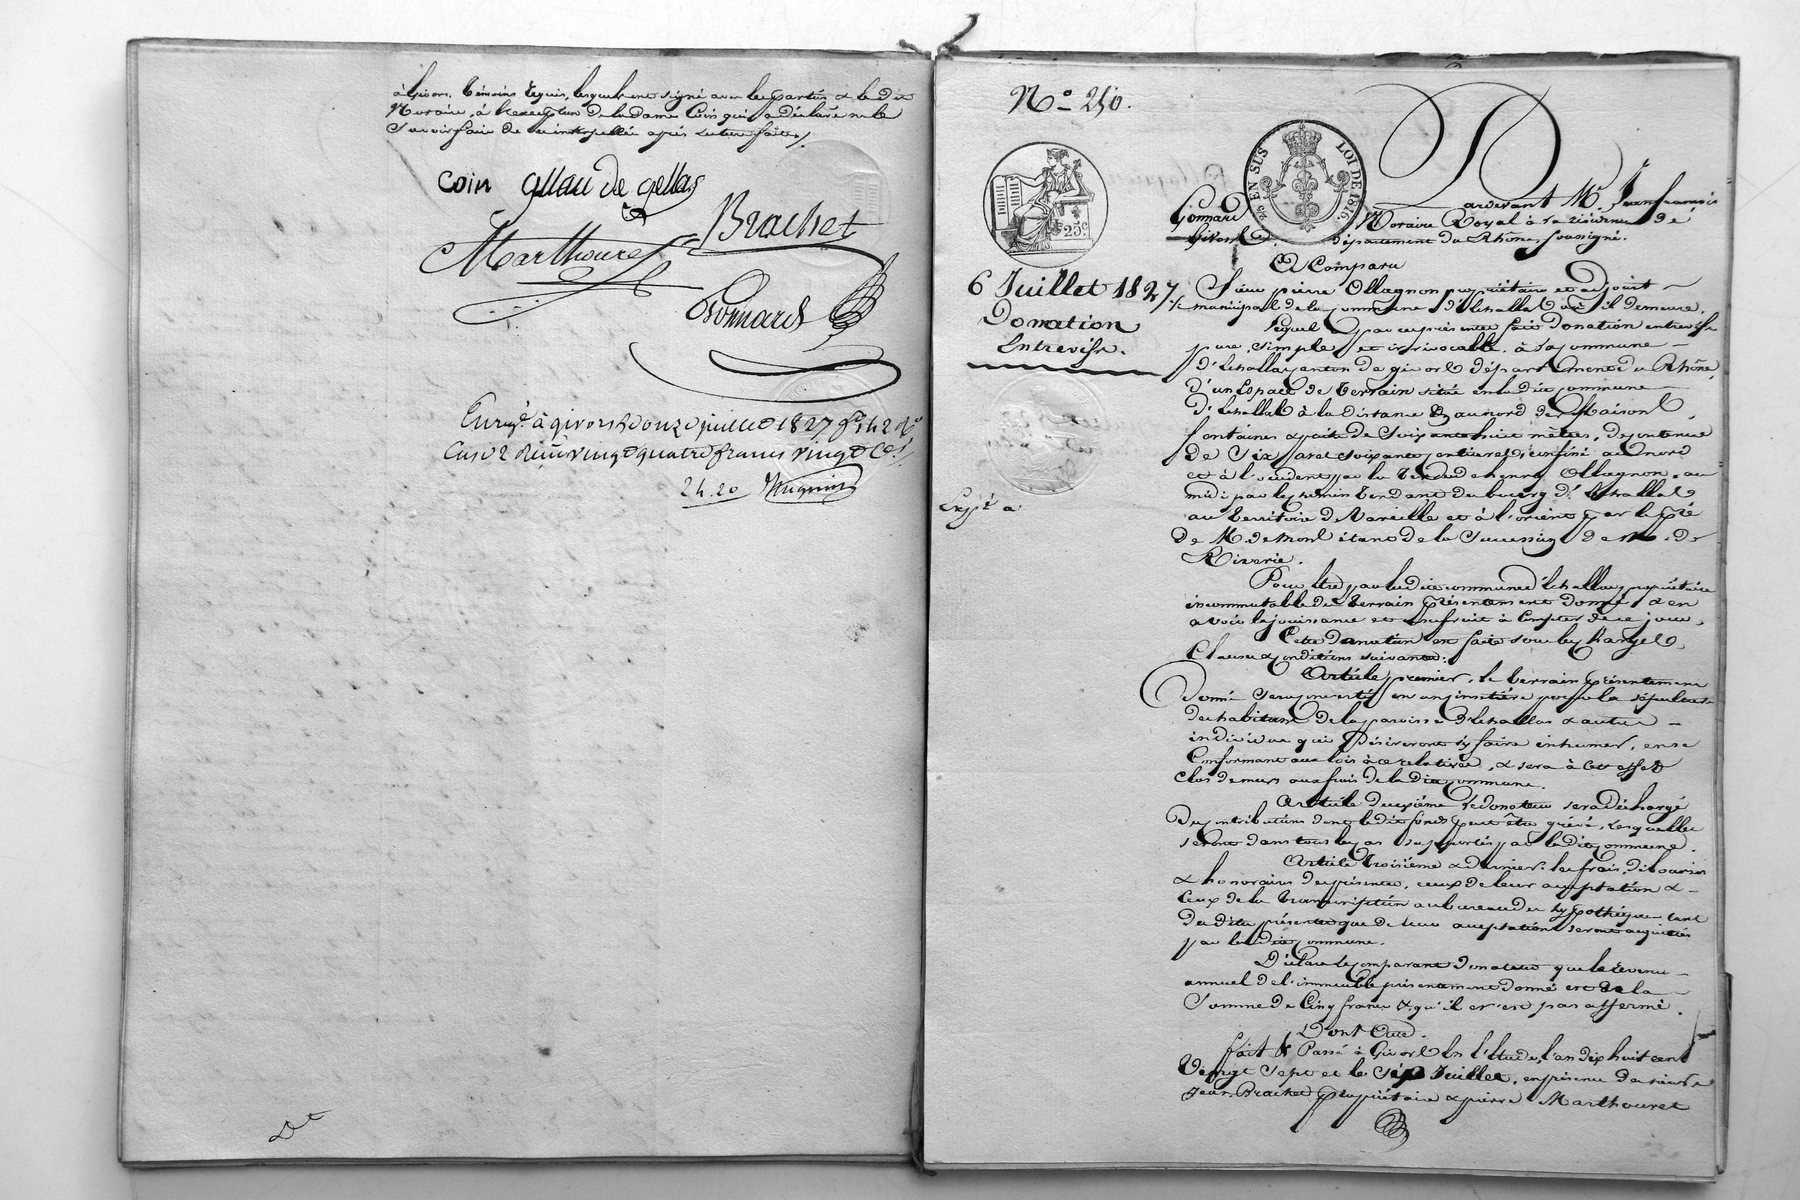 à Givors. témoins requis, lesquels ont signé avec les parties & le dit
Notaire, à l'exception de la dame Coin qui a déclaré ne le
Savoir faire de ce interpellée après lecture faite./.
coin ollau de gellas
Brachet
Marthouret
Bonnard
Enreg.é à givors le douze juillet 1827 f.o 142 R.o
Case 2 reçu vingt quatre francs vingt C.es
24.20
N.o 250.
EN SUS
LOI DE 1816
25c
6 Juillet 1827./.
Donation
Entrevifs.
Expé a
Pardevant M.e Jean francois
Bonnard Notaire Royal à la résidence de
Givors département du Rhône, soussigné.
A Comparu
Sieur pierre Ollagnon propriétaire et adjoint
municipal de la commune d'Echallas où il demeure,
Lequel par ces présentes fait donation entrevifs
pure, simple et irrévocable, à la commune
d'Echallas canton de givors département du Rhône,
d'un Espace de terrain situé en la dite commune
d'Echallas à la distance & au nord des Maisons,
fontaines & puits de Soixante huit mètres, de contenue
de Six ares soixante centiares, confiné au nord
et à l'occident par la terre du chenu Ollagnon, au
midi par le chemin tendant du bourg d'Echallas
au territoire de Nareille et à l'orient par le pré
de M. de Mont étant de la Succession de M. de
Riverie.
Pour être par la dite commune d'Echallas propriétaire
incommutable du terrain présentement donné, & en
avoir la jouissance et usufruit à compter de ce jour,
Cette donation est faite sous les charges,
Clauses & conditions suivantes:
Article premier, le terrain présentement
donné sera converti en un cimetière pour la sépulture
des habitans de la paroisse d'Echallas & autres
individus qui désireront s'y faire inhumer, en se
Conformant aux lois à ce relatives, & sera à cet effet
Clos de murs aux frais de la dite commune.
Article deuxième le donateur sera déchargé
des contributions dont le dit fonds peut être grévé, lesquelles
seront dans tous les cas supportées par la dite commune.
Article troisième & dernier: les frais, déboursés
& honoraires des présentes, ceux de leur acceptation &
Ceux de la transcription au bureau des hypothèques tant
des dites présentes que de leur acceptation seront acquittés
par la dite commune.
Déclare le comparant donateur que le revenu
annuel de l'immeuble présentement donné est de la
Somme de Cinq francs & qu'il n'est pas affermé.
Dont Acte.
fait & Passé à Givors En l'Etude, l'an dix huit cent
Vingt Sept et le Six Juillet, en présence des sieurs
Jean Brachet propriétaire & pierre Marthouret